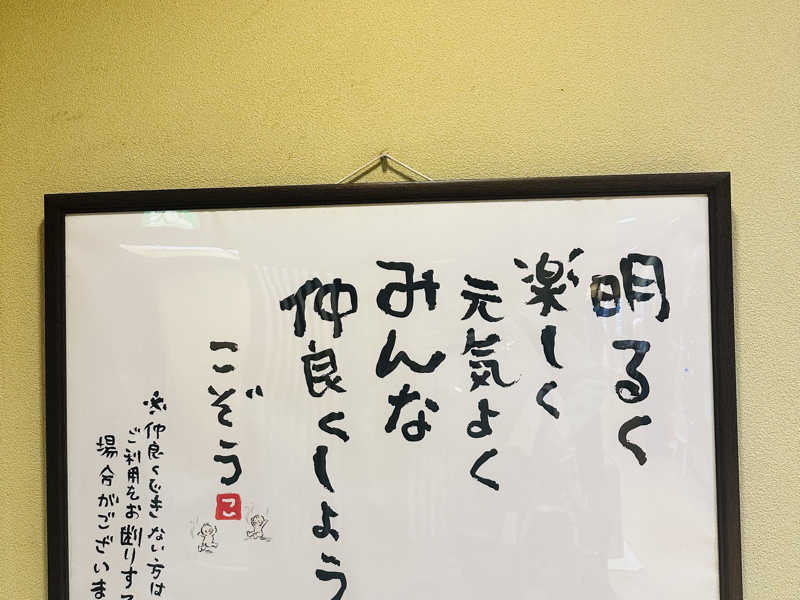 明るく
楽しく
元気よく
みんな
仲良くしよう
こぞう
こ
※仲良くできない方は
ご利用をお断りする
場合がございま